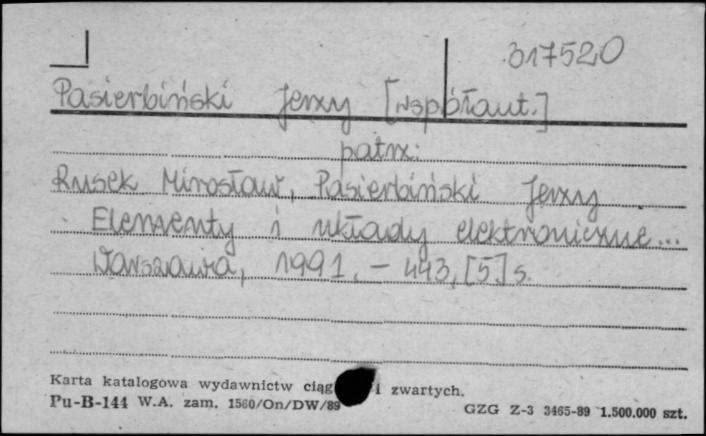 317520
Pasierbiński Jerzy [współaut.]
patrz:
Rusek Mirosław, Pasierbiński Jerzy
Elementy i układy elektroniczne...
Warszawa, 1991. – 443, [5] s.
Karta katalogowa wydawnictw zwartych.
Pu-B-144 W.A. zam. 1560/On/DW/89
GZG Z-3 3465-89 1.500.000 szt.